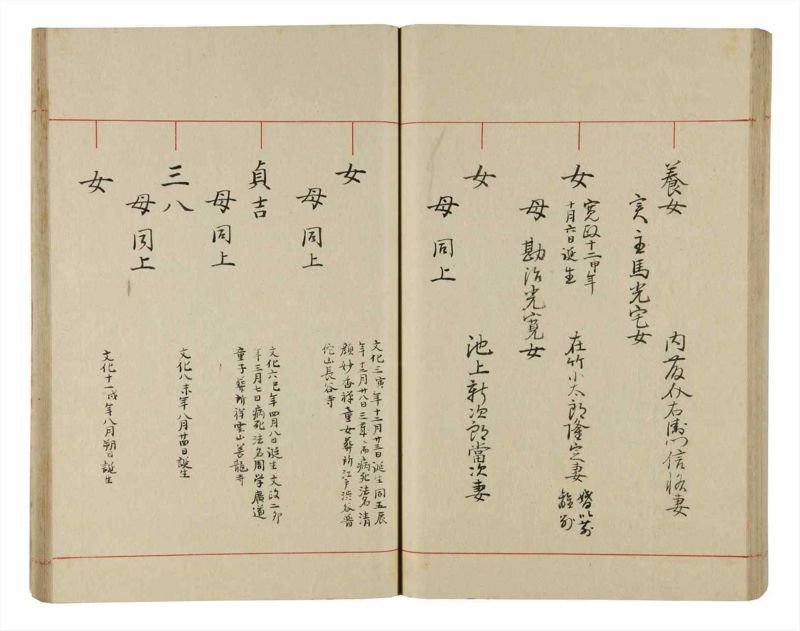 養女
実主馬光宅女
内藤仁右衛門信将妻
女
寛政十二申年
十月六日誕生
母 勘治光寛女
在竹小太郎隆定妻
婚以前
離別
女
母同上
池上新次郎當次妻
女
母同上
文化三寅年十二月廿三日誕生同五辰
年十二月廿八日三歳ニ而病死法名清
顔妙香禅童女葬所江戸渋谷普
陀山長谷寺
貞吉
母同上
文化六巳年四月八日誕生文政二卯
年三月七日病死法名周学廣道
童子葬所祥雲山善龍寺
三八
母同上
文化八未年八月廿四日誕生
女
母同上
文化十一戌年八月朔日誕生